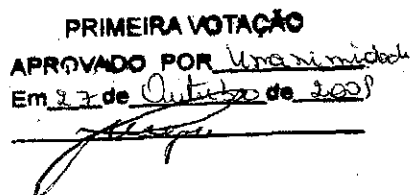 PRIMEIRA VOTAÇÃO
APROVADO POR Unanimidade
Em 27 de Outubro de